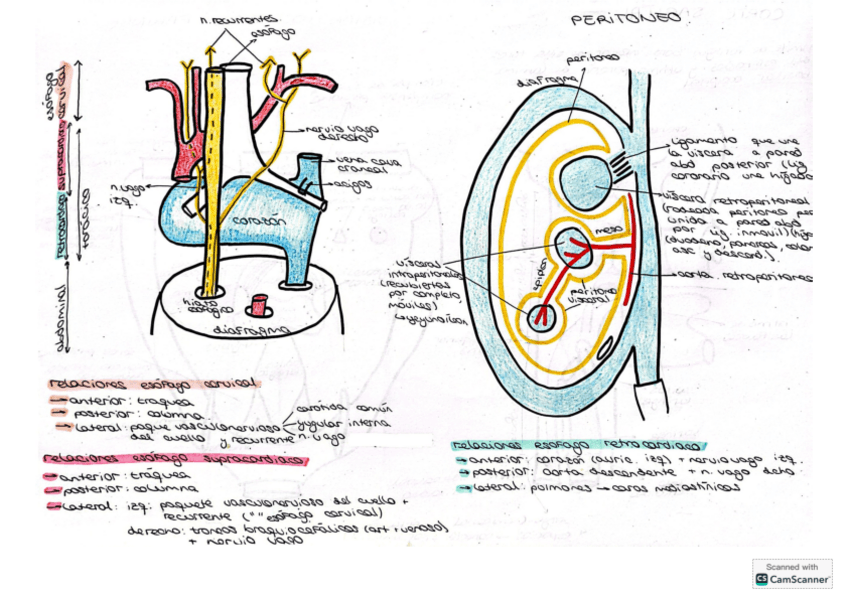 n. recurrentes
esófago
esófago cervical
supracardiaco
retrocardiaco
torácico
abdominal
nervio vago derecho
vena cava craneal
ácigos
n. vago izq.
corazón
hiato esofágico
diafragma
PERITONEO
peritoneo
diafragma
ligamento que une
la víscera a pared
abd posterior (lig
coronario une hígado
víscera retroperitoneal
(rodeada peritoneo per
unida a pared abd
por lig. inmovil)
(duodeno, páncreas, colon
asc y descend.)
meso
epiplon
peritoneo visceral
aorta retroperitonea
vísceras
intraperitoneales
(recubiertas
por completo
móviles)
↳ yeyunoileon
relaciones esófago cervical
→ anterior: traquea
→ posterior: columna
→ lateral: paque vasculonervioso
del cuello y recurrente
carótida común
yugular interna
n. vago
relaciones esófago supracardiaco
→ anterior: tráquea
→ posterior: columna
→ lateral: izq: paquete vasculonervioso del cuello +
recurrente (" " esófago cervical)
derecho: troncos braquiocefálicos (art + venoso)
+ nervio vago
relaciones esofago retrocardiaco
→ anterior: corazón (auric. izq) + nervio vago izq.
→ posterior: aorta descendente + n. vago dcho
→ lateral: pulmones → caras mediastínicas
Scanned with
CS CamScanner